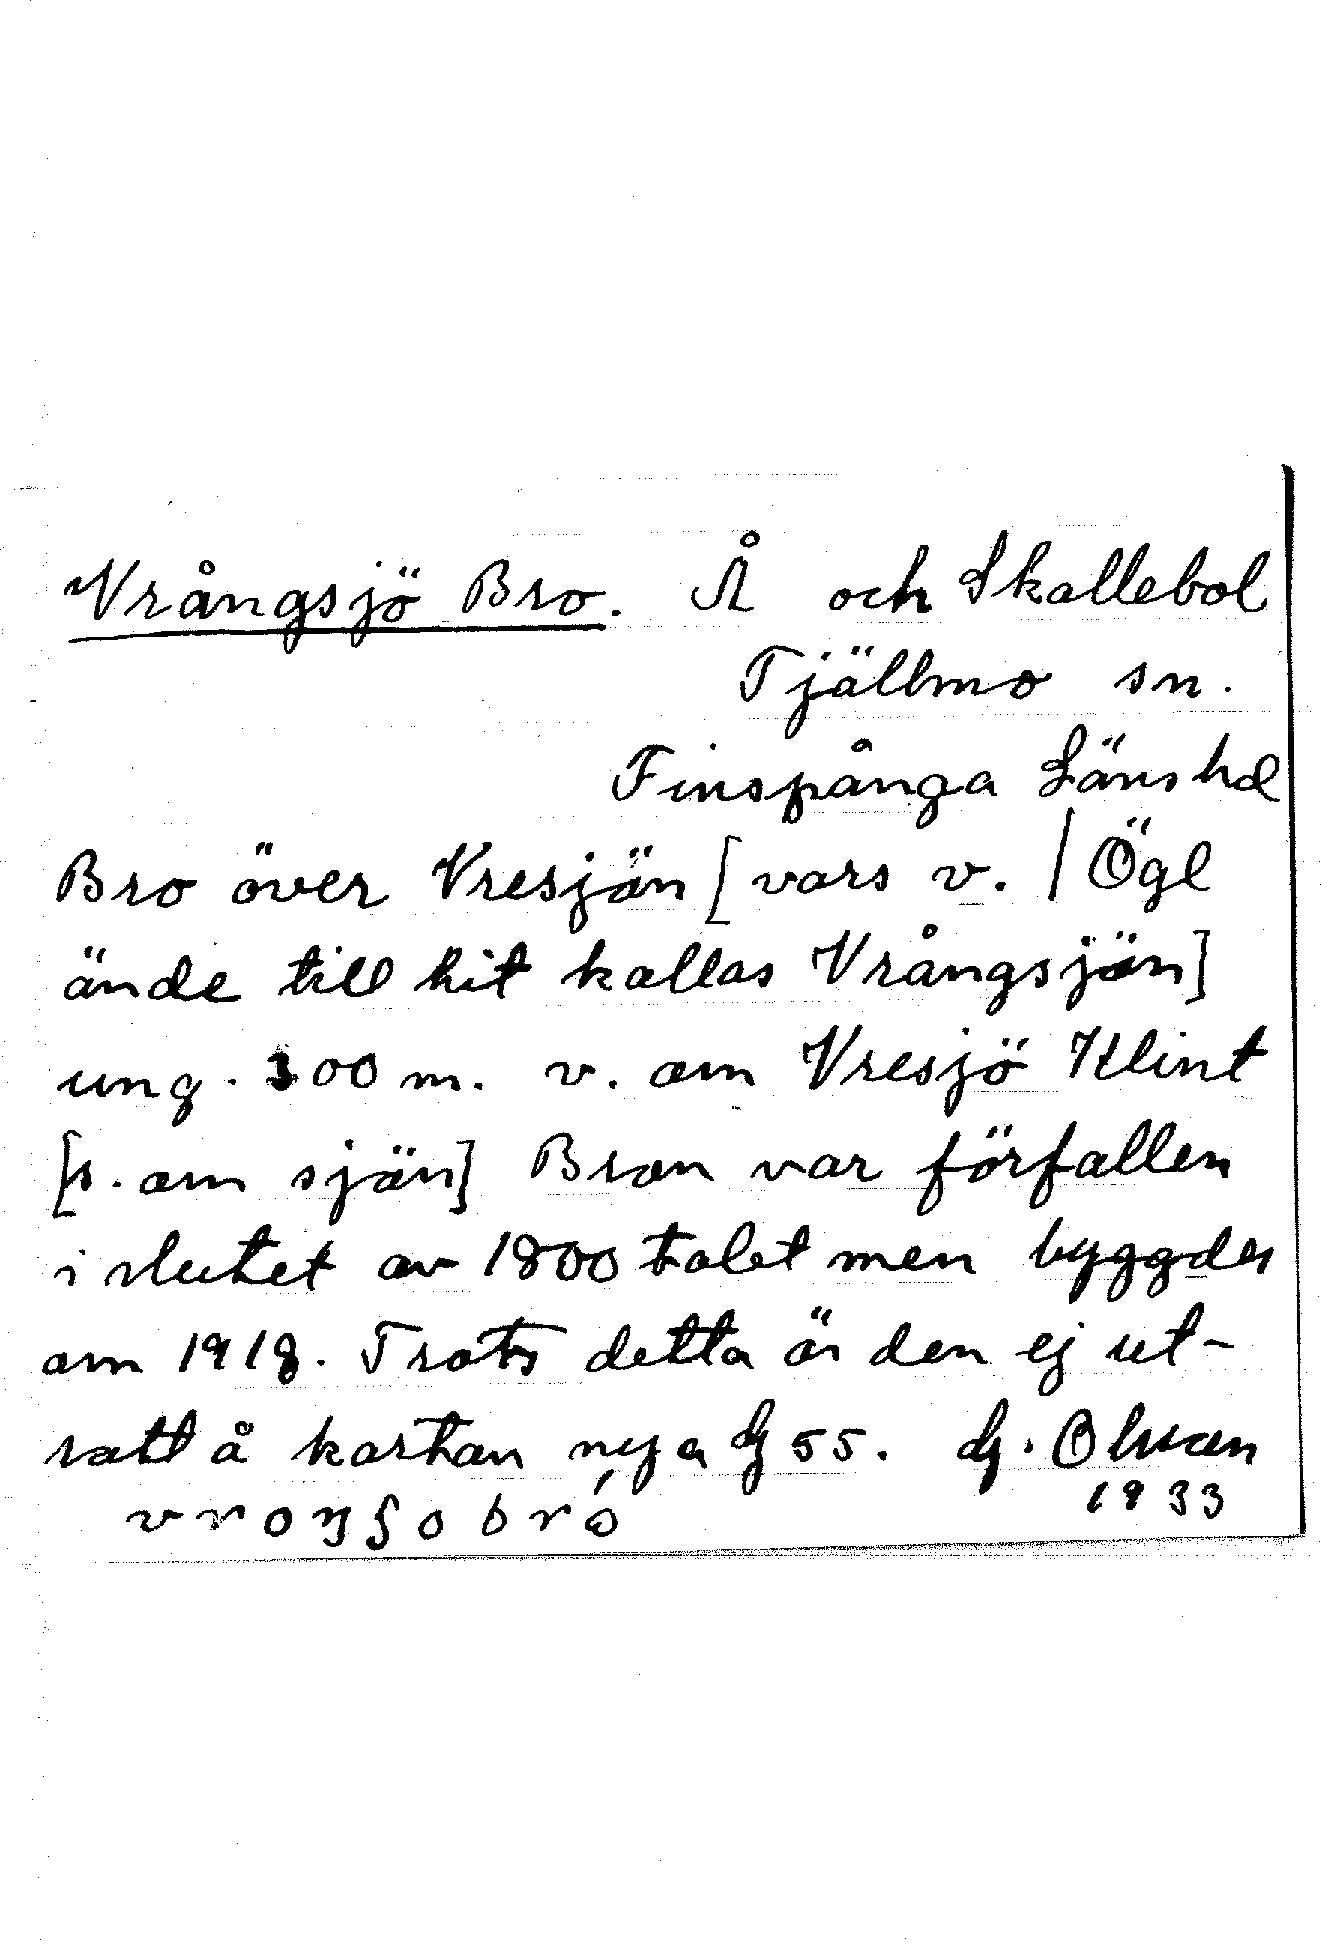 Vrångsjö Bro. Å och Skallebol
Tjällmo sn.
Finspånga Länshd
Bro över Vresjön [vars v. / Ögl
ände till hit kallas Vrångsjön]
ung. 300 m. v. om Vresjö Klint
[s. om sjön] Bron var förfallen
i slutet av 1800 talet men byggdes
om 1918. Trots detta är den ej ut-
satt å kartan nya G 55. G. Olsson
1933
vroŋʃobró